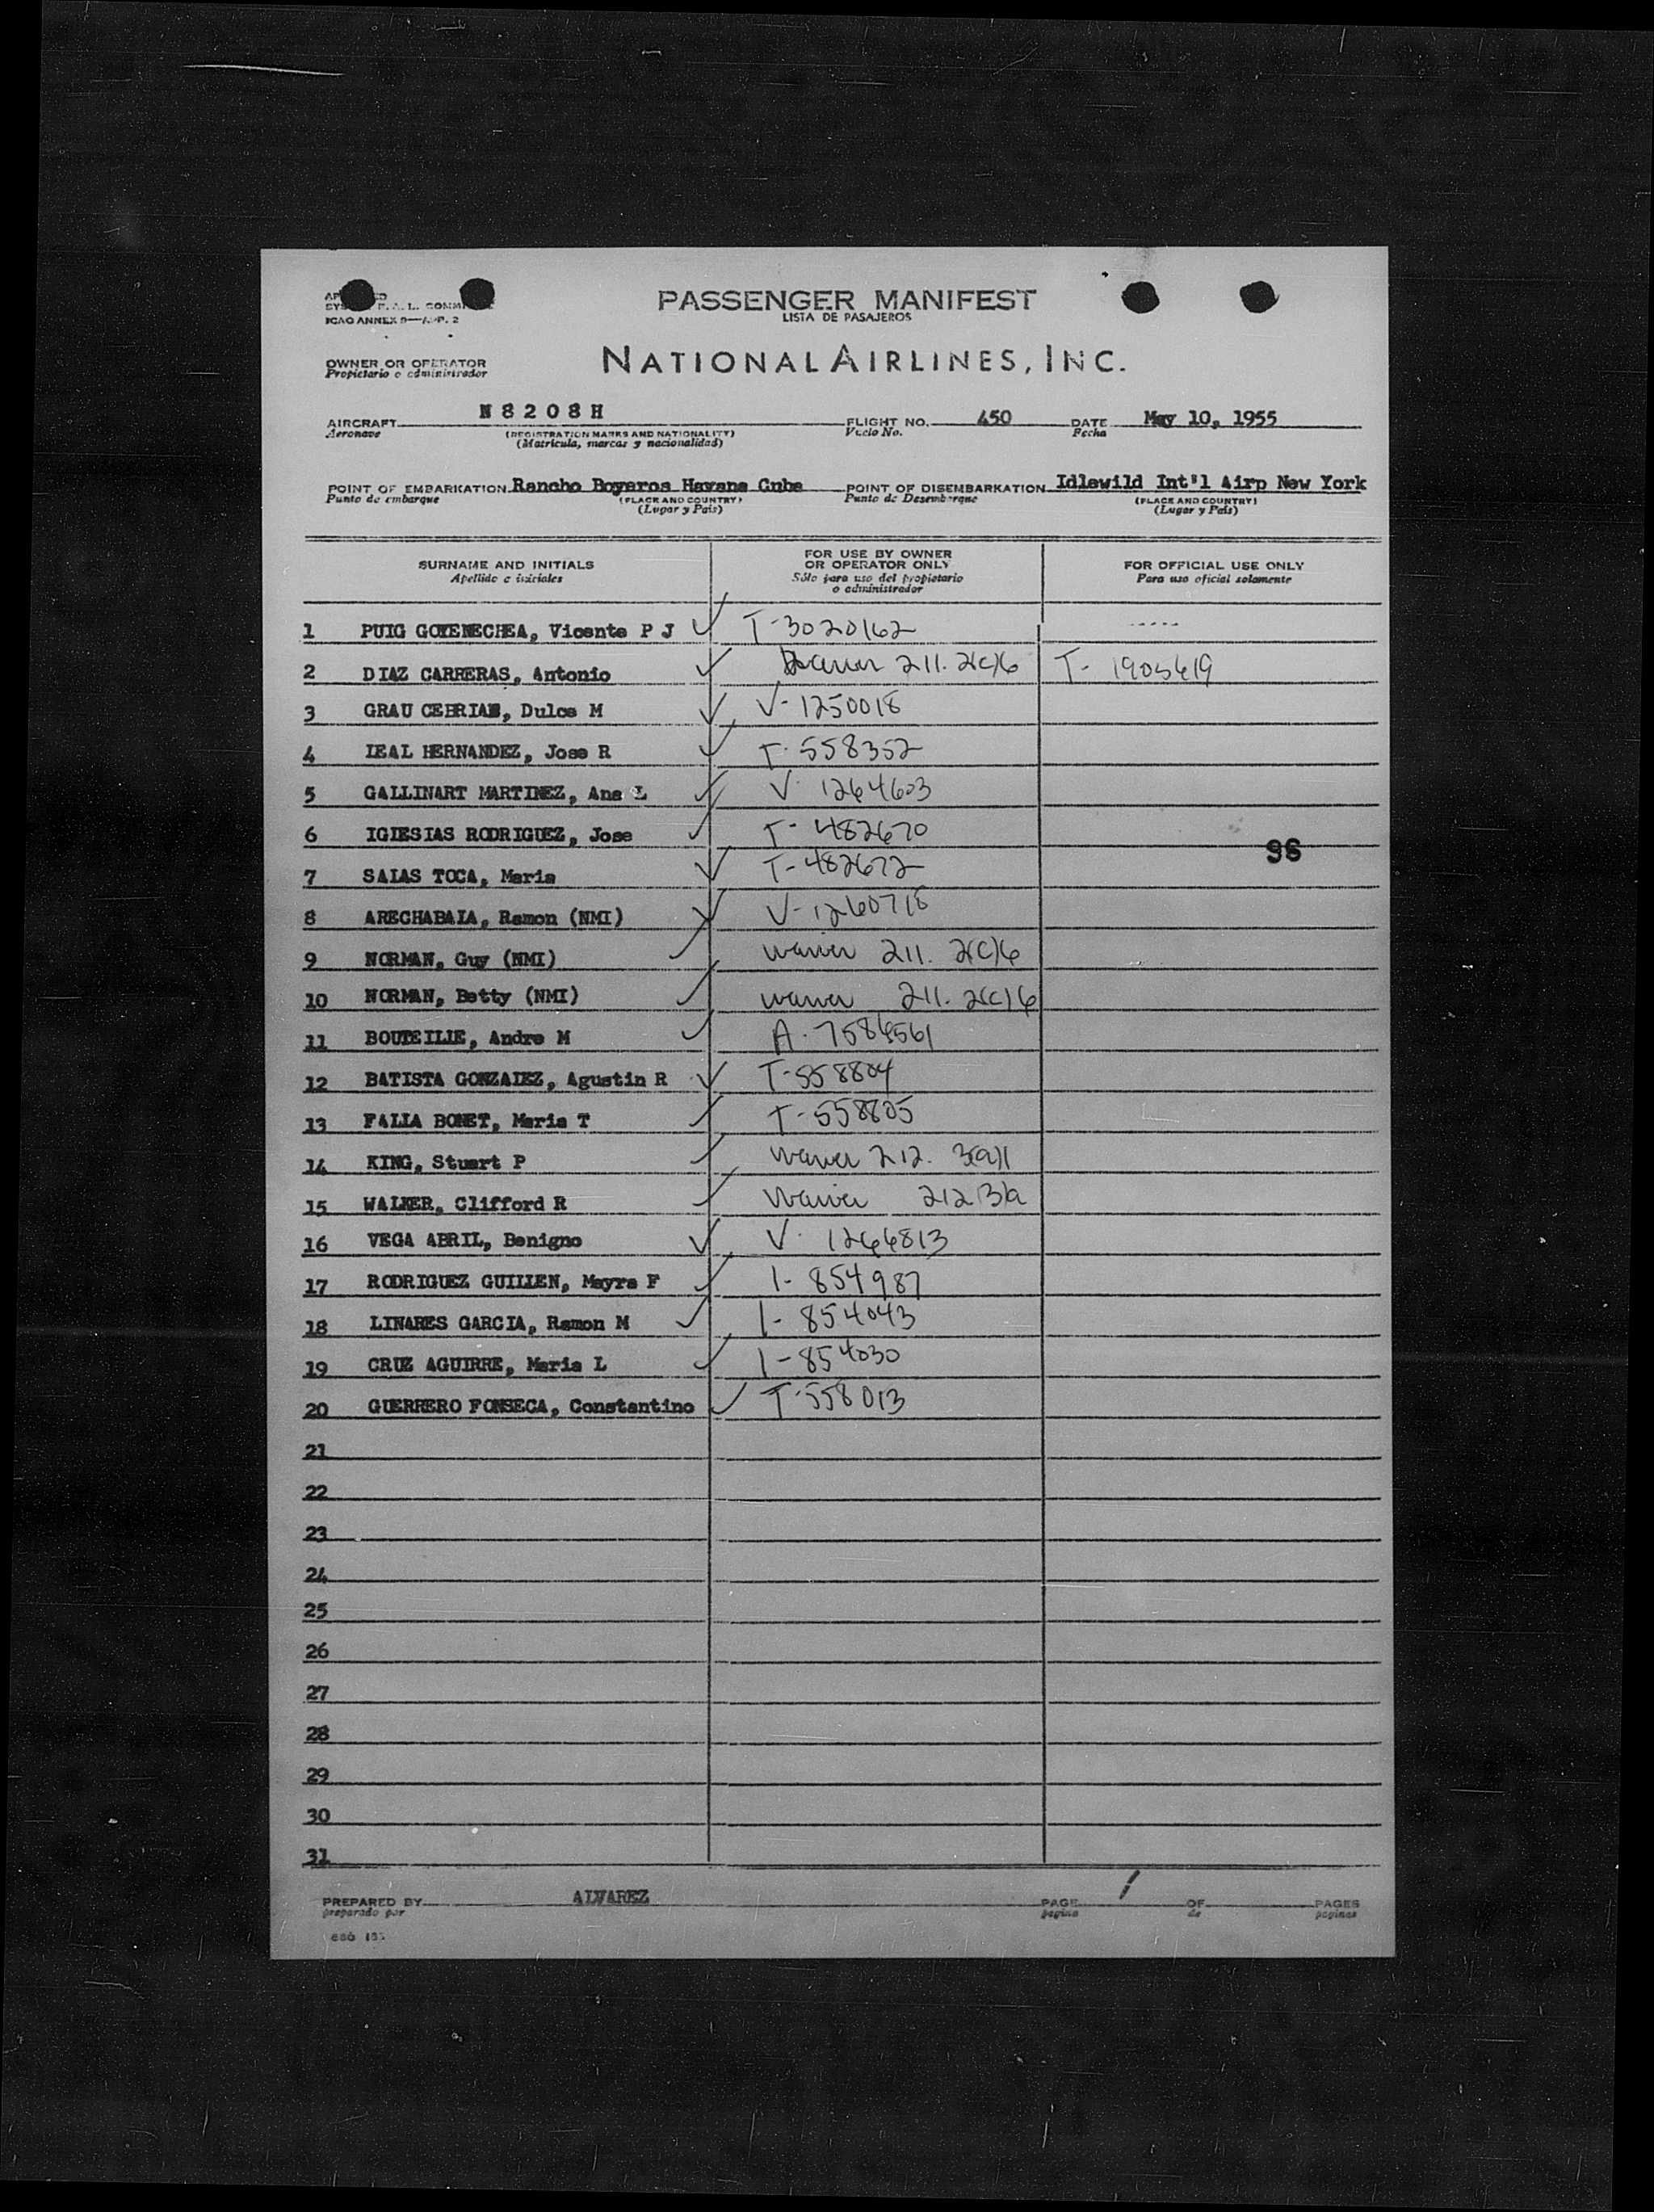 PASSENGER MANIFEST
LISTA DE PASAJEROS
ICAO ANNEX 9—APP. 2
OWNER OR OPERATOR
Propietario o administrador
NATIONAL AIRLINES, INC.
AIRCRAFT N8208H FLIGHT NO. 450 DATE May 10, 1955
Aeronave (REGISTRATION MARKS AND NATIONALITY) Vuelo No. Fecha
(Matricula, marcas y nacionalidad)
POINT OF EMBARKATION Rancho Boyeros Havana Cuba POINT OF DISEMBARKATION Idlewild Int'l Airp New York
Punto de embarque (PLACE AND COUNTRY) Punto de Desembarque (PLACE AND COUNTRY)
(Lugar y País) (Lugar y País)
SURNAME AND INITIALS FOR USE BY OWNER OR OPERATOR ONLY FOR OFFICIAL USE ONLY
Apellido e iniciales Sólo para uso del propietario o administrador Para uso oficial solamente
1 PUIG GOYENECHEA, Vicente P J ✓ T-3020162 -----
2 DIAZ CARRERAS, Antonio ✓ waiver 211. 2(c)6 T- 1905619
3 GRAU CEBRIAN, Dulce M ✓ V-1250018
4 LEAL HERNANDEZ, Jose R ✓ T-558352
5 GALLINART MARTINEZ, Ana L ✓ V- 1264603
6 IGLESIAS RODRIGUEZ, Jose ✓ T- 482670
98
7 SALAS TOCA, Maria ✓ T-482672
8 ARECHABALA, Ramon (NMI) ✓ V-1260718
9 NORMAN, Guy (NMI) ✓ waiver 211. 2(c)6
10 NORMAN, Betty (NMI) ✓ waiver 211. 2(c)6
11 BOUTEILLE, Andre M ✓ A- 7586561
12 BATISTA GONZALEZ, Agustin R ✓ T-558804
13 FALLA BONET, Maria T ✓ T-558805
14 KING, Stuart P ✓ waiver 212. 3(a)1
15 WALKER, Clifford R ✓ waiver 212 3/a
16 VEGA ABRIL, Benigno ✓ V- 1266813
17 RODRIGUEZ GUILLEN, Mayra F ✓ 1- 854987
18 LINARES GARCIA, Ramon M ✓ 1- 854043
19 CRUZ AGUIRRE, Maria L ✓ 1-854030
20 GUERRERO FONSECA, Constantino ✓ T-558013
21
22
23
24
25
26
27
28
29
30
31
PREPARED BY ALVAREZ PAGE 1 OF PAGES
preparado por pagina de paginas